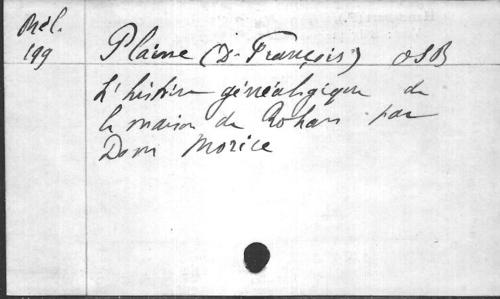 Mél.
199
Plaine (D. François) OSB
L'histoire généalogique de
la maison de Rohan par
Dom Morice